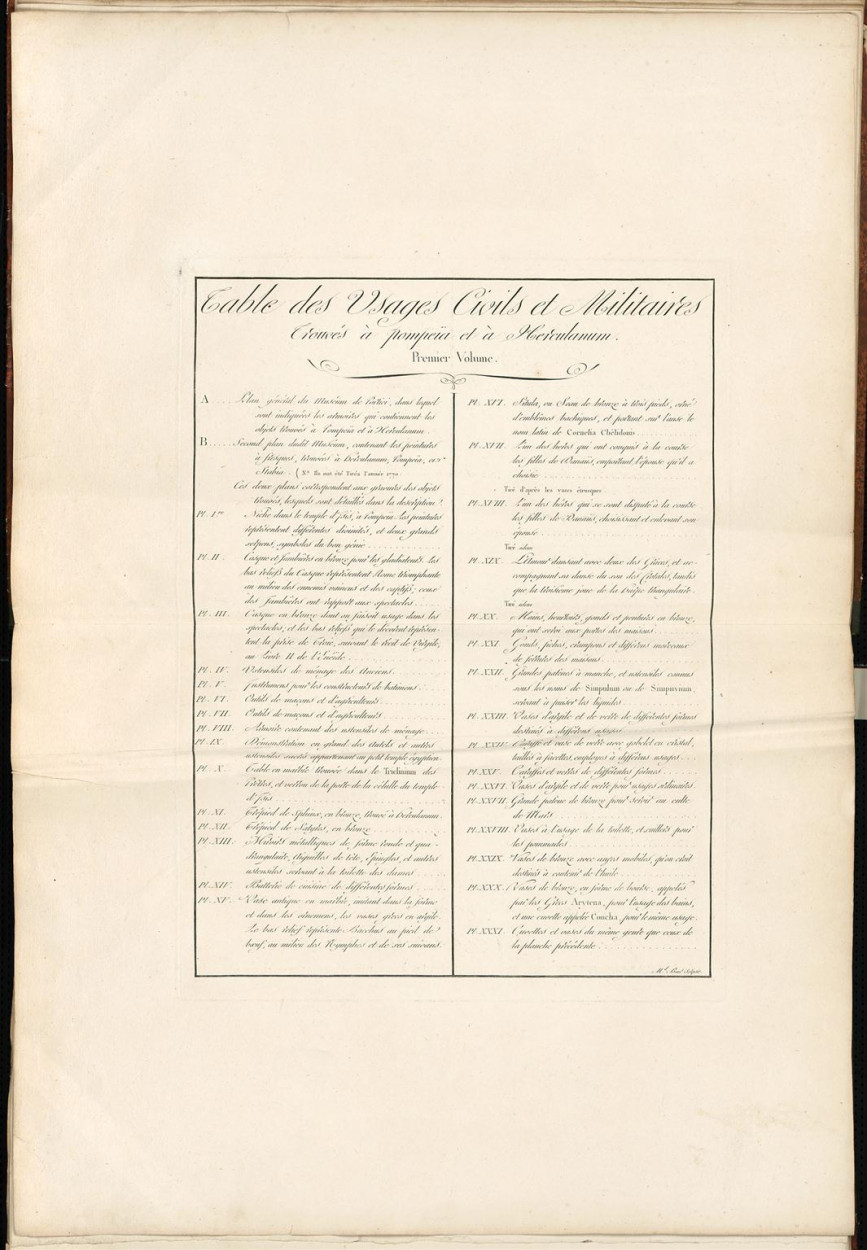 Table des Usages Civils et Militaires
Trouvés à Pompeïa et à Herculanum.
Premier Volume.
A.... Plan général du Muséum de Portici, dans lequel
sont indiquées les armoires qui contiennent les
objets trouvés à Pompeïa et à Herculanum.
B.... Second plan dudit Muséum, contenant les peintures
à fresques, trouvées à Herculanum, Pompeïa, et
Stabia.
Ces deux plans correspondent aux gravures des objets
trouvés, lesquels sont détaillés dans la description.
Pl. I.re Niche dans le temple d'Isis, à Pompeïa. Les peintures
représentent différentes divinités, et deux grands
serpens, symboles du bon génie
Pl. II. Casque et Jambières en bronze pour les gladiateurs. Les
bas reliefs du Casque représentent Rome triomphante
au milieu des ennemis vaincus et des captifs; ceux
des Jambières ont rapport aux spectacles
Pl. III. Casque en bronze dont on faisoit usage dans les
spectacles, et les bas reliefs qui le décorent représen-
tent la prise de Troie, suivant le récit de Virgile,
au Livre II de l'Enéide
Pl. IV. Ustensiles de ménage des Anciens
Pl. V. Instrumens pour les constructeurs de batimens
Pl. VI. Outils de maçons et d'agriculteurs
Pl. VII. Outils de maçons et d'agriculteurs
Pl. VIII. Armoire contenant des ustensiles de ménage
Pl. IX. Démonstration en grand des Autels et autres
ustensiles sacrés appartenant au petit temple égyptien
Pl. X. Table en marbre trouvée dans le Triclinium des
Prêtres, et verrou de la porte de la cellule du temple
d'Isis
Pl. XI. Trépied de Sphinx, en bronze, trouvé à Herculanum
Pl. XII. Trépied de Satyres, en bronze
Pl. XIII. Miroirs métalliques de forme ronde et qua-
drangulaire, Aiguilles de tête, Epingles, et autres
ustensiles servant à la toilette des dames
Pl. XIV. Batterie de cuisine de différentes formes
Pl. XV. Vase antique en marbre, imitant dans sa forme
et dans ses ornemens, les vases grecs en argile.
Le bas relief représente Bacchus au pied de
bœuf, au milieu des Nymphes et de ses suivans.
Pl. XVI. Situla, ou Seau de bronze à trois pieds, orné
d'emblêmes bachiques, et portant sur l'anse le
nom latin de Cornelia Chélidonis
Pl. XVII. L'un des héros qui ont conquis à la course
les filles de Danaüs, emportant l'épouse qu'il a
choisie
Tiré d'après les vases étrusques
Pl. XVIII. L'un des héros qui se sont disputé à la course
les filles de Danaüs, choisissant et enlevant son
épouse
Tiré idem
Pl. XIX. dansant avec deux des Grâces, et ac-
compagnant sa danse du son des Crotales, tandis
que la troisième joue de la Lyre triangulaire.
Tiré idem
Pl. XX. Mains, heurtoirs, gonds et pentures en bronze,
qui ont servi aux portes des maisons
Pl. XXI. Gonds, fiches, crampons et différens morceaux
de ferrures des maisons
Pl. XXII. Grandes patères à manche, et ustensiles connus
sous les noms de Simpulum ou de Simpuvium,
servant à puiser les liquides
Pl. XXIII. Vases d'argile et de verre de différentes formes
destinés à différens usages
Pl. XXIV. Caraffe et vase de verre avec gobelet en cristal,
taillés à facettes, employés à différens usages
Pl. XXV. Caraffes et verres de différentes formes
Pl. XXVI. Vases d'argile et de verre pour usages ordinaires
Pl. XXVII. Grande patère de bronze pour servir au culte
de Mars
Pl. XXVIII. Vases à l'usage de la toilette, et cuillers pour
les pommades
Pl. XXIX. Vases de bronze avec anses mobiles, qu'on croit
destinés à contenir de l'huile
Pl. XXX. Vases de bronze, en forme de bourse, appelés
par les Grecs Arytena, pour l'usage des bains,
et une cuvette appelée Concha, pour le même usage
Pl. XXXI. Cuvettes et vases du même genre que ceux de
la planche précédente